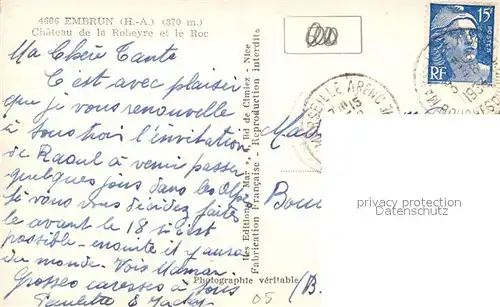 4606 EMBRUN (H.-A.) (870 m.)
Château de la Robeyre et le Roc
Ma Chère Tante
C'est avec plaisir
que je vous renouvelle
à tous trois l'invitation
de Raoul à venir passer
quelques jours dans les Alpes
si vous vous décidez faites
le avant le 18 si c'est
possible - ensuite il y aura
du monde. Vois Maman.
Grosses caresses à tous
Paulette &
les Editions "Mar", de Cimiez - Nice
Fabrication Française - Reproduction interdite
Photographie véritable
15F
RF
MARSEILLE ARENC
Bou
05
(B.
privacy protection
Datenschutz